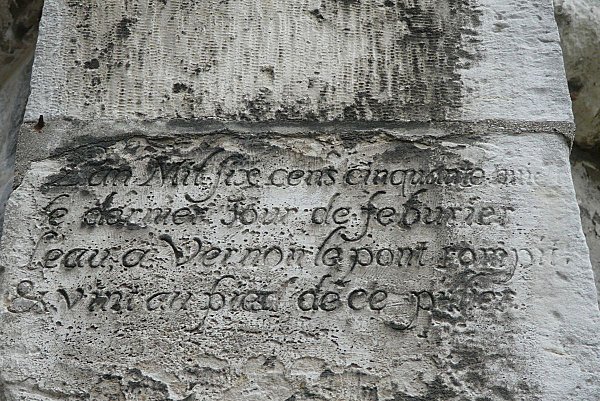 Lan Mil six cens cinquante
le dernier Jour de feburier
leau a Vernon le pont rompit.
& vint au pied de ce pilier